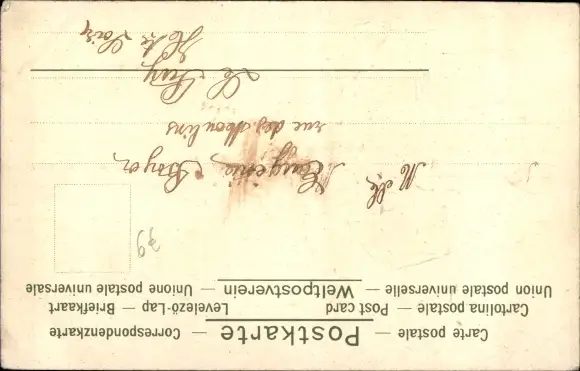 Carte postale — Postkarte — Correspondenzkarte
Cartolina postale — Post card Levelező-Lap — Briefkaart
Union postale universelle — Weltpostverein — Unione postale universale
39
Mlle Eugénie Boyer
rue des Moulins
Le Puy
Hte Loire